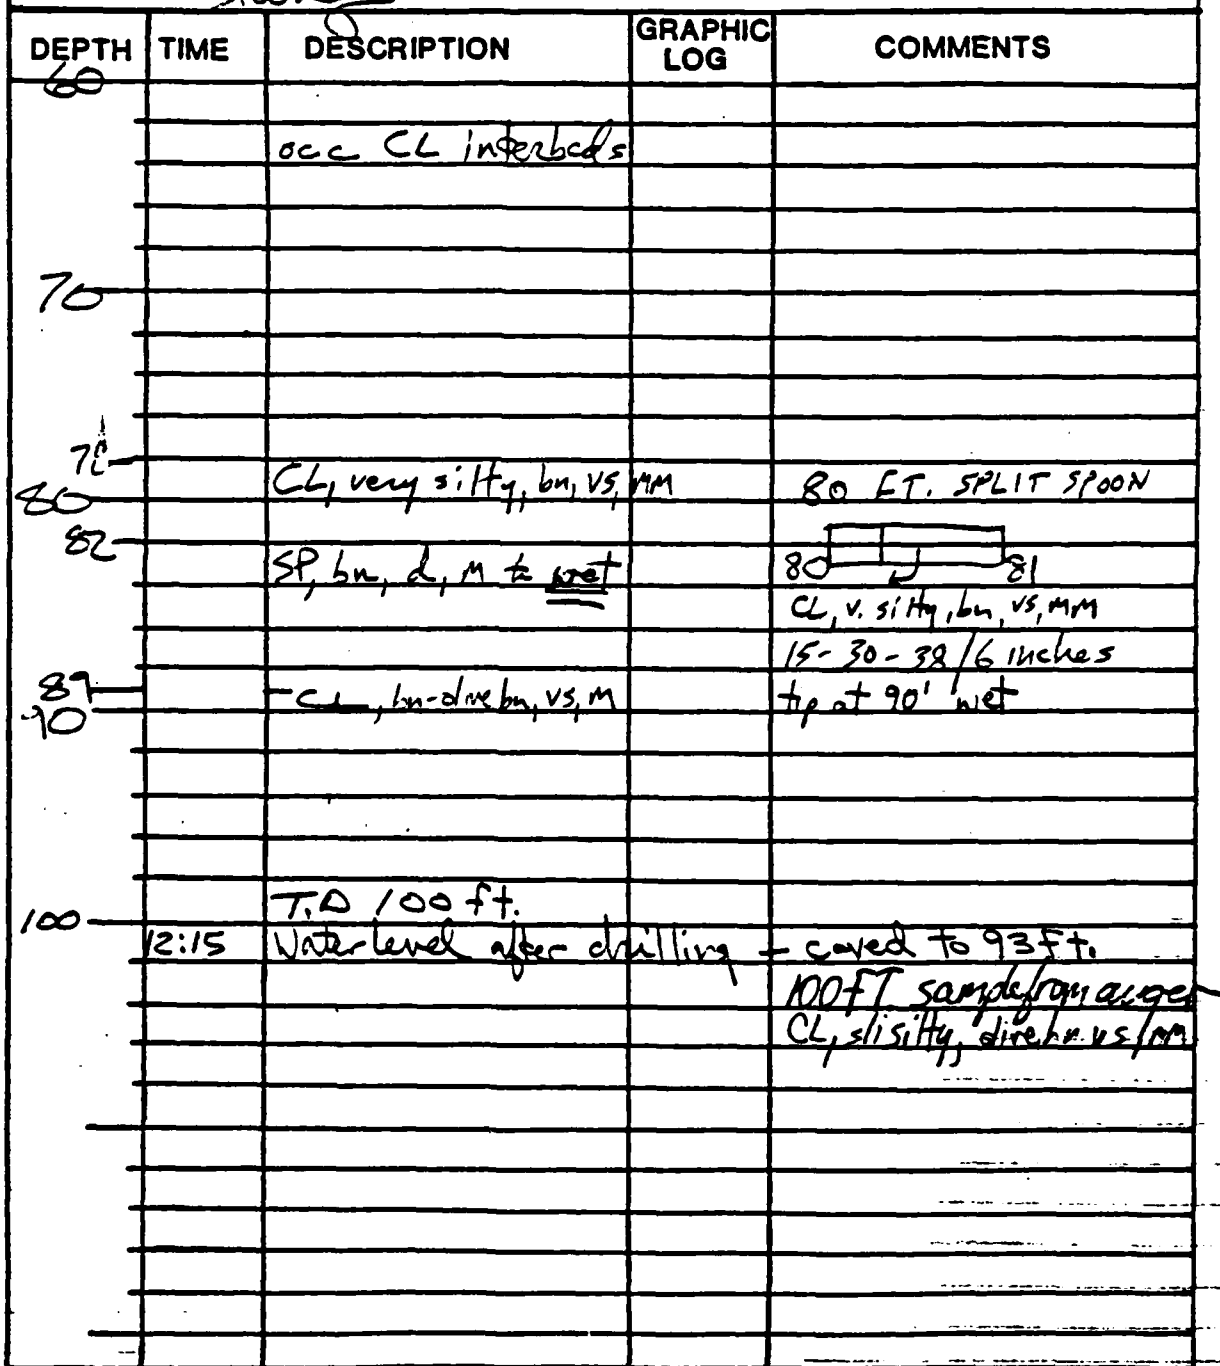 DEPTH TIME DESCRIPTION GRAPHIC LOG COMMENTS
60
occ CL interbeds
70
78
CL, very silty, bn, VS, MM 80 FT. SPLIT SPOON
80
82
80 81
SP, bn, d, M to wet
CL, v. silty, bn, vs, MM
15-30-38/6 inches
89 CL, bn-olive bn, vs, M tip at 90' wet
90
T.D 100 ft.
100
12:15 Water level after drilling - caved to 93 ft.
100 FT sample from auger
CL, sli silty, olive bn vs, MM